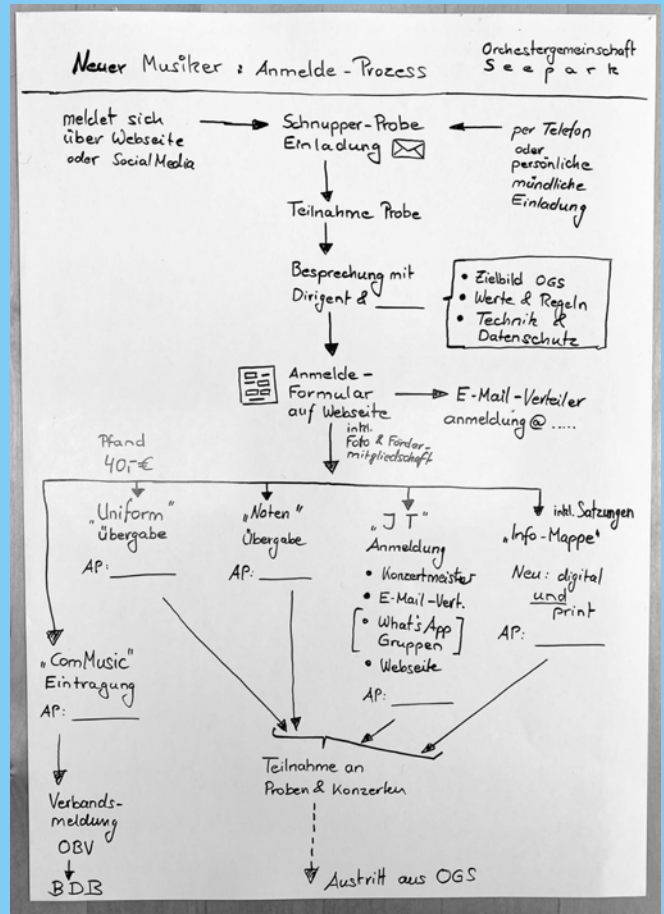 Neuer Musiker : Anmelde-Prozess
Orchestergemeinschaft
Seepark
meldet sich
über Webseite
oder Social Media
Schnupper-Probe
Einladung
per Telefon
oder
persönliche
mündliche
Einladung
Teilnahme Probe
Besprechung mit
Dirigent & ____
• Zielbild OGS
• Werte & Regeln
• Technik &
Datenschutz
Anmelde-
Formular
auf Webseite
inkl.
Foto & Förder-
mitgliedschaft
E-Mail-Verteiler
anmeldung@.....
Pfand
40,-€
"Uniform"
übergabe
AP: ____
"Noten"
Übergabe
AP: ____
"IT"
Anmeldung
• Konzertmeister
• E-Mail-Vert.
[• What's App
Gruppen]
• Webseite
AP: ____
inkl. Satzungen
"Info-Mappe"
Neu: digital
und
print
AP: ____
"ComMusic"
Eintragung
AP: ____
Verbands-
meldung
OBV
BDB
Teilnahme an
Proben & Konzerten
Austritt aus OGS